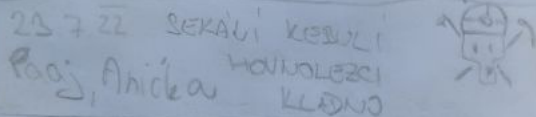 23 7 22 SEKÁLI KEŠULI
Paaj, Anička HOVNOLEZCI
KLADNO